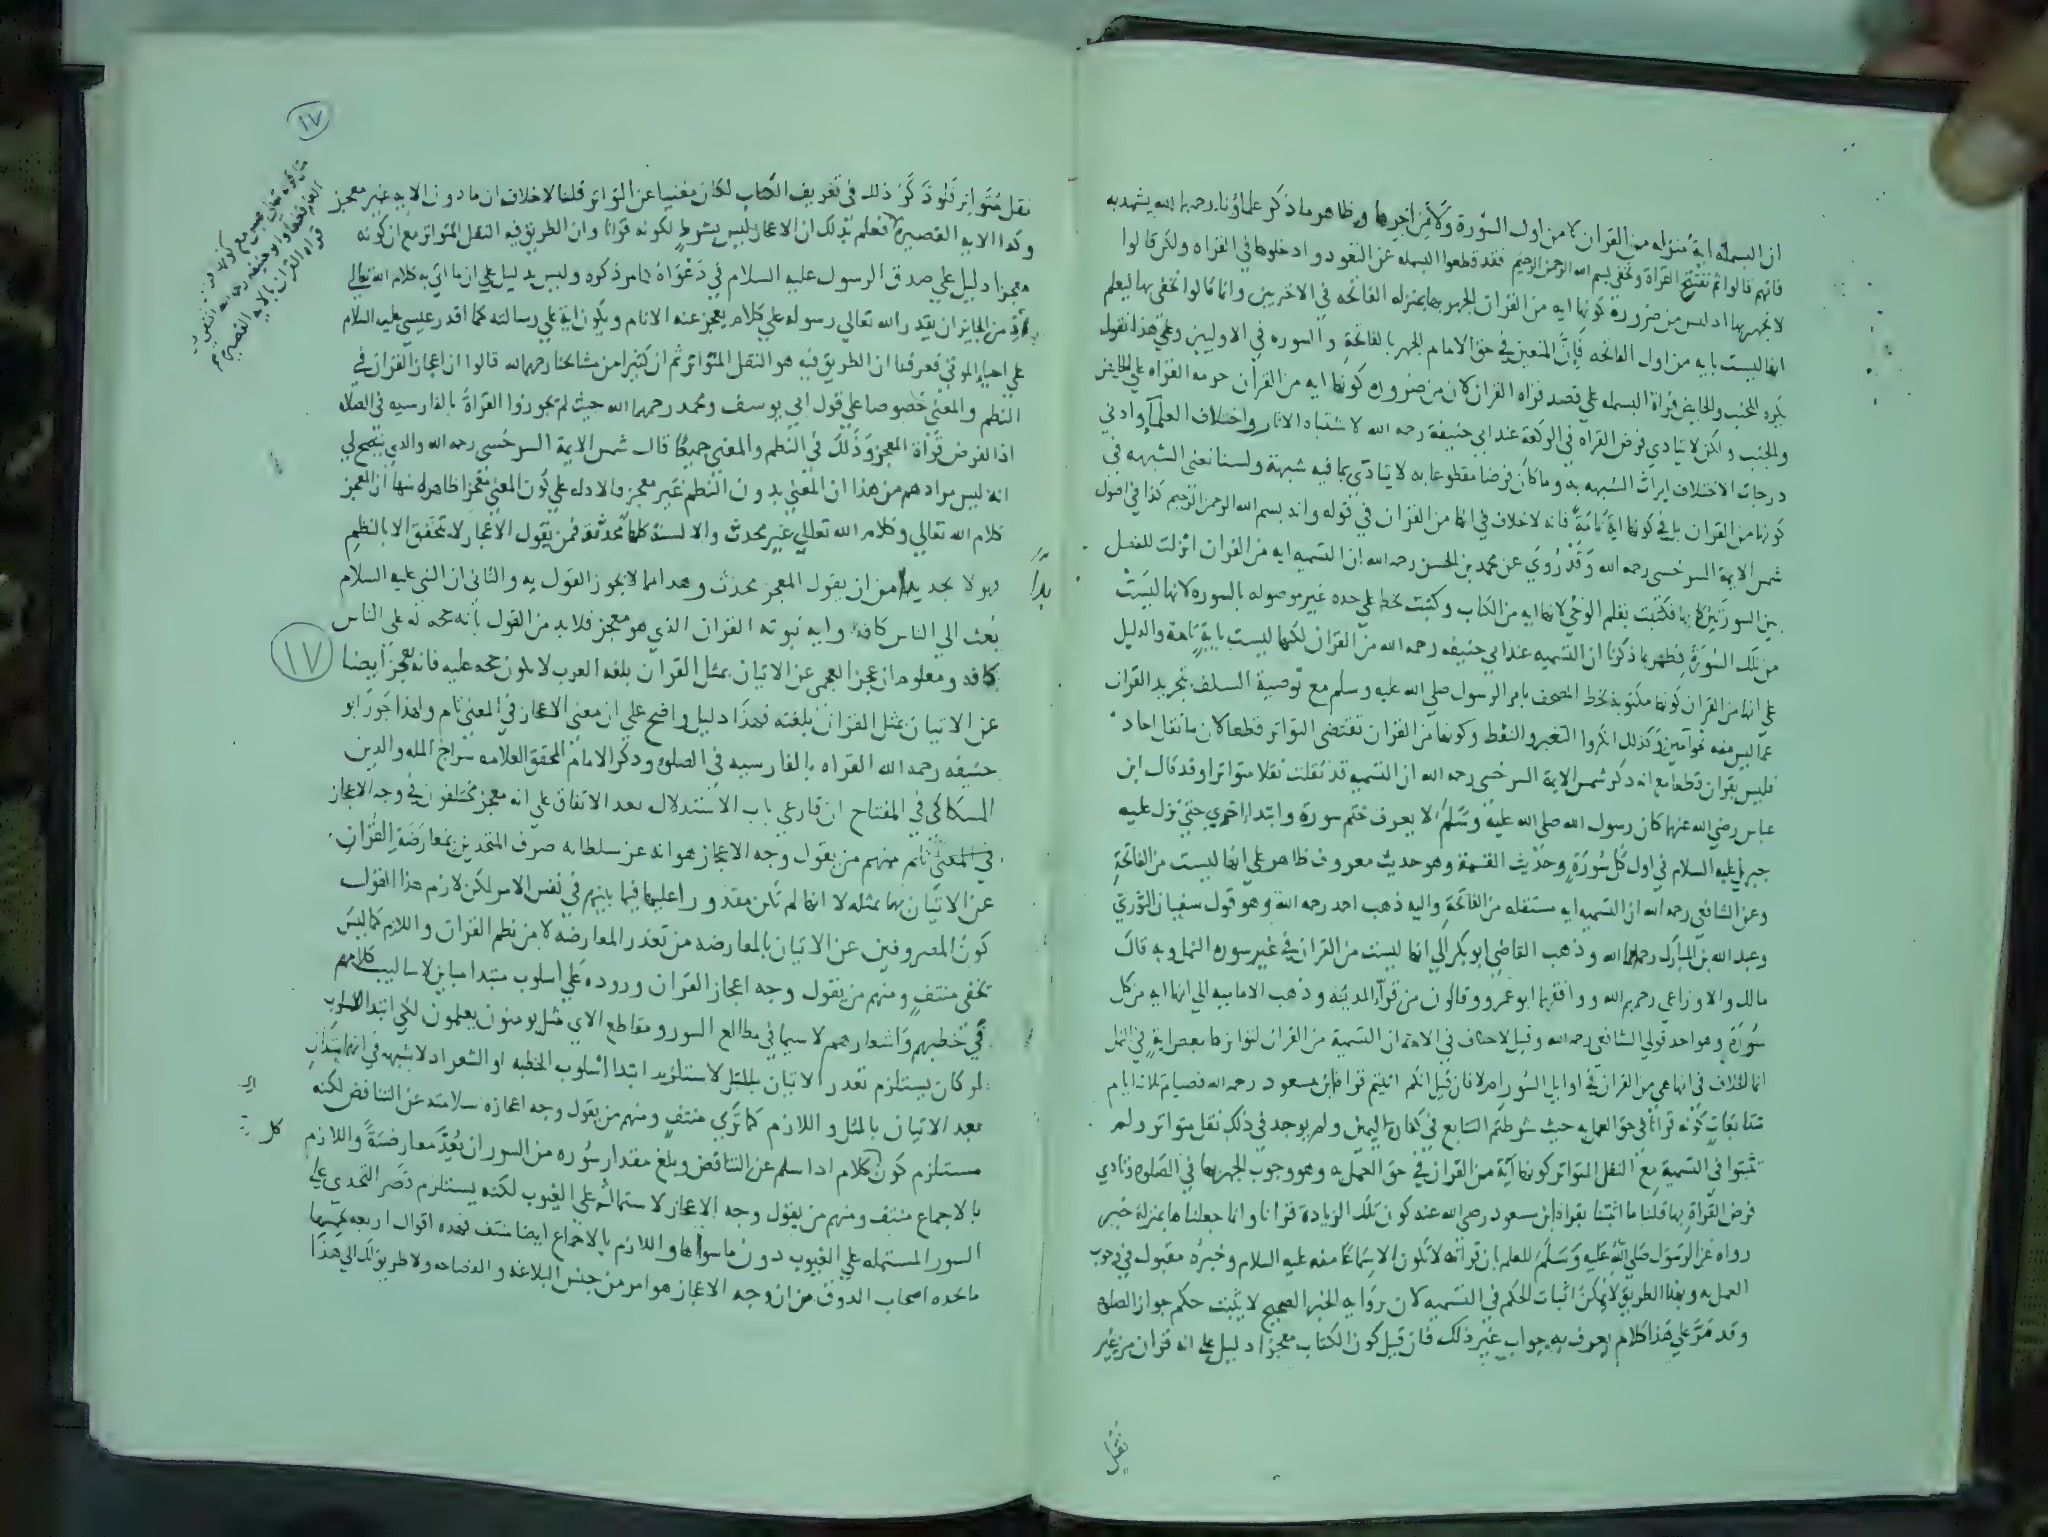 ان البسملة اية منزله من القران لا من اول السورة ولا من اخرها وظاهر ما ذكر علماؤنا رحمهم الله يشهد به
فانهم قالوا ثم تفتتح القراة وتخفي بسم الله الرحمن الرحيم فقد قطعوا البسمله عن التعوذ وادخلوها في القراه ولكن قالوا
لا تجهر بها اذ ليس من ضرورة كونها ايه من القران الجهر بها بمنزله الفاتحه في الاخريين وانما قالوا تخفى بها ليعلم
انها ليست بايه من اول الفاتحه فان المتعين في حق الامام الجهر بالفاتحة والسوره في الاوليين وعلى هذا نقول
يكره للجنب والحايض قراة البسمله على قصد قراه القران كان من ضروره كونها ايه من القران حرمه القراه على الحايض
والجنب ولكن لا يتادي فرض القراه في الركعة عند ابي حنيفة رحمه الله لاشتباه الاثار واختلاف العلماء وادنى
درجات الاختلاف ايراث الشبهه به وما كان فرضا مقطوعا به لا يتادى بما فيه شبهة ولسنا نعني الشبهه في
كونها من القران بل في كونها اية تامة فانه لا خلاف في انها من القران في قوله وانه بسم الله الرحمن الرحيم كذا في اصول
شمس الايمة السرخسي رحمه الله وقد روي عن محمد بن الحسن رحمه الله ان التسميه ايه من القران انزلت للفصل
بين السورتين فكتبت بقلم الوحي لانها ايه من الكتاب وكتبت بخط على حده غير موصوله بالسوره لانها ليست
من تلك السورة فظهر بما ذكرنا ان التسميه عند ابي حنيفه رحمه الله من القران لكنها ليست باية تامة والدليل
على انها من القران كونها مكتوبة بخط المصحف بامر الرسول صلى الله عليه وسلم مع توصية السلف بتجريد القران
عما ليس منه نحو آمين وكذلك انكروا التعشير والنقط وكونها من القران تقتضى التواتر قطعا لان ما نقل احاد
فليس بقران قطعا مع انه ذكر شمس الايمة السرخسي رحمه الله ان التسميه قد نقلت نقلا متواترا وقد قال ابن
عباس رضي الله عنهما كان رسول الله صلى الله عليه وسلم لا يعرف ختم سورة وابتدا اخري حتى نزل عليه
جبريل عليه السلام في اول كل سورة وحديث القسمة وهو حديث معروف ظاهر على انها ليست من الفاتحة
وعن الشافعي رحمه الله ان التسميه ايه مستقله من الفاتحة واليه ذهب احمد رحمه الله وهو قول سفيان الثوري
وعبد الله بن المبارك رحمهما الله وذهب القاضي ابو بكر الي انها ليست من القران في غير سوره النمل وبه قال
مالك والاوزاعي رحمهم الله ووافقهما ابو عمرو وقالون من قراء المدينة وذهب الامامية الي انها ايه من كل
سورة وهو احد قولي الشافعي رحمه الله وقيل لا خلاف في الامة ان التسمية من القران لتواترها بعض اية في النمل
انما الخلاف في انها هي من القران في اوايل السور ام لا فان قيل انكم اثبتم قراة ابن مسعود رحمه الله فصيام ثلاثه ايام
متتابعات كونه قرانا في حق العمل به حيث شرطتم التتابع في كفارة اليمين ولم يوجد في ذلك نقل متواتر ولم
تثبتوا في التسمية مع النقل المتواتر كونها آية من القران في حق العمل به وهو وجوب الجهر بها في الصلوه وتادي
فرض القراة بها قلنا ما اثبتنا بقراة ابن مسعود رضي الله عنه كون تلك الزيادة قرانا وانما جعلناها بمنزلة خبر
رواه عن الرسول صلى الله عليه وسلم للعلم بان قراته لا تكون الا سماعا منه عليه السلام وخبره مقبول في وجوب
العمل به وبهذا الطريق لا يمكن اثبات الحكم في التسميه لان برواية الخبر الصحيح لا يثبت حكم جواز الصلوه
وقد مر على هذا كلام يعرف به جواب غير ذلك فان قيل كون الكتاب معجزا دليل على انه قران من غير
نقل
١٧
نقل متواتر فلو ذكر ذلك في تعريف الكتاب لكان مغنيا عن التواتر قلنا لا خلاف ان ما دون الايه غير معجز
وكذا الايه القصيرة فعلم بذلك ان الاعجاز ليس بشرط لكونه قرانا وان الطريق فيه النقل المتواتر مع ان كونه
معجزا دليل على صدق الرسول عليه السلام في دعواه كما مر ذكره وليس بدليل على ان ما اتي به كلام الله تعالي
اذ من الجايز ان يقدر الله تعالي رسوله على كلام يعجز عنه الانام ويكون اية على رسالته كما اقدر عيسي عليه السلام
على احياء الموتي فعرفنا ان الطريق فيه هو النقل المتواتر ثم ان كثيرا من مشايخنا رحمهم الله قالوا ان اعجاز القران في
النظم والمعنى خصوصا على قول ابي يوسف ومحمد رحمهما الله حيث لم يجوزوا القراة بالفارسيه في الصلاه
اذ الفرض قراة المعجز وذلك في النظم والمعنى جميعا قال شمس الايمة السرخسي رحمه الله والذي يتضح لي
انه ليس مرادهم من هذا ان المعنى بدون النظم غير معجز فالادله على كون المعنى معجزا ظاهره منها ان المعجز
كلام الله تعالي وكلام الله تعالي غير محدث والالسنة كلها محدثة فمن يقول الاعجاز لا يتحقق الا بالنظم
فهو لا يجد بدا من ان يقول المعجز محدث وهذا مما لا يجوز القول به والثاني ان النبي عليه السلام
بعث الي الناس كافة واية نبوته القران الذي هو معجز فلا بد من القول بانه حجه له على الناس
كافه ومعلوم ان عجز العجمى عن الاتيان بمثل القران بلغه العرب لا يكون حجه عليه فانه يعجز ايضا
عن الاتيان بمثل القران بلغته فهذا دليل واضح على ان معنى الاعجاز في المعنى تام ولهذا جوز ابو
حنيفه رحمه الله القراه بالفارسيه في الصلوه وذكر الامام المحقق العلامه سراج المله والدين
السكاكى في المفتاح ان قارعي باب الاستدلال بعد الاتفاق على انه معجز مختلفون في وجه الاعجاز
فمنهم من يقول وجه الاعجاز هو انه عز سلطانه صرف المتحدين بمعارضة القران
عن الاتيان بمثله لا انها لم تكن مقدورا عليها فيما بينهم في نفس الامر لكن لازم هذا القول
كون المصروفين عن الاتيان بالمعارضه من تعذر المعارضه لا من نظم القران واللازم كما ليس
يخفى منتف ومنهم من يقول وجه اعجاز القران وروده على اسلوب مبتدا مباين لاساليب كلامهم
في خطبهم واشعارهم لا سيما في مطالع السور ومقاطع الاي مثل يومنون يعلمون لكن ابتدا اسلوب
لو كان يستلزم تعذر الاتيان بالمثل لاستلزم ابتدا اسلوب الخطبه او الشعر اذ لا شبهه في انهما مبتدان
تعذر الاتيان بالمثل واللازم كما ترى منتف ومنهم من يقول وجه اعجازه سلامته عن التناقض لكنه
مستلزم كون كلام اذا سلم عن التناقض وبلغ مقدار سوره من السور ان يعد معارضة واللازم
بالاجماع منتف ومنهم من يقول وجه الاعجاز الاشتمال على الغيوب لكنه يستلزم قصر التحدي على
السور المشتمله على الغيوب دون ما سواها واللازم بالاجماع ايضا منتف فهذه اقوال اربعه يخمسها
ما يجده اصحاب الذوق من ان وجه الاعجاز هو امر من جنس البلاغة والفصاحه ولا طريق لك الي هذا
بدا
١٧
كل